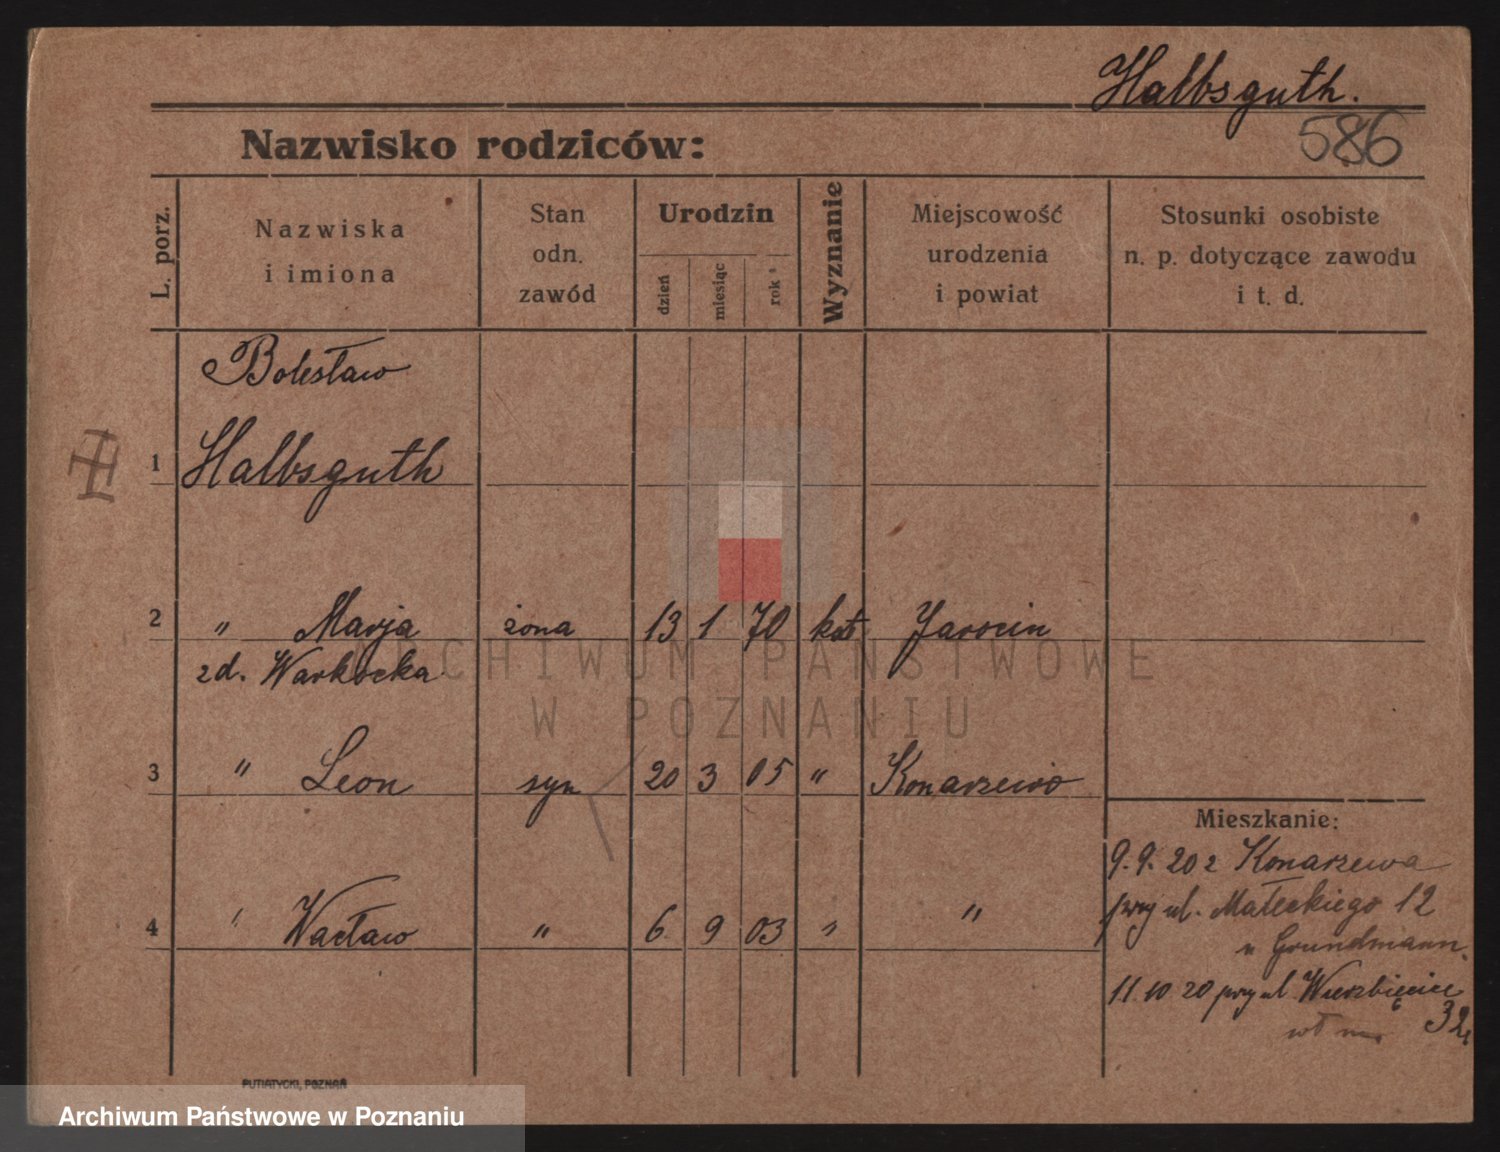 Halbsguth.
586
Nazwisko rodziców:
L. porz.
Nazwiska
i imiona
Stan
odn.
zawód
Urodzin
dzień
miesiąc
rok
Wyznanie
Miejscowość
urodzenia
i powiat
Stosunki osobiste
n. p. dotyczące zawodu
i t. d.
Bolesław
1 Halbsguth
2 " Marja żona 13 1 70 kat Jarocin
zd. Warkocka
3 " Leon syn 20 3 05 " Konarzewo
4 " Wacław " 6 9 03 " "
Mieszkanie:
9.9.20 z Konarzewa
przy ul. Małeckiego 12
u Grundmann.
11.10 20 przy ul. Wierzbięcice
32
PUTIATYCKI, POZNAŃ
ARCHIWUM PAŃSTWOWE
W POZNANIU
Archiwum Państwowe w Poznaniu